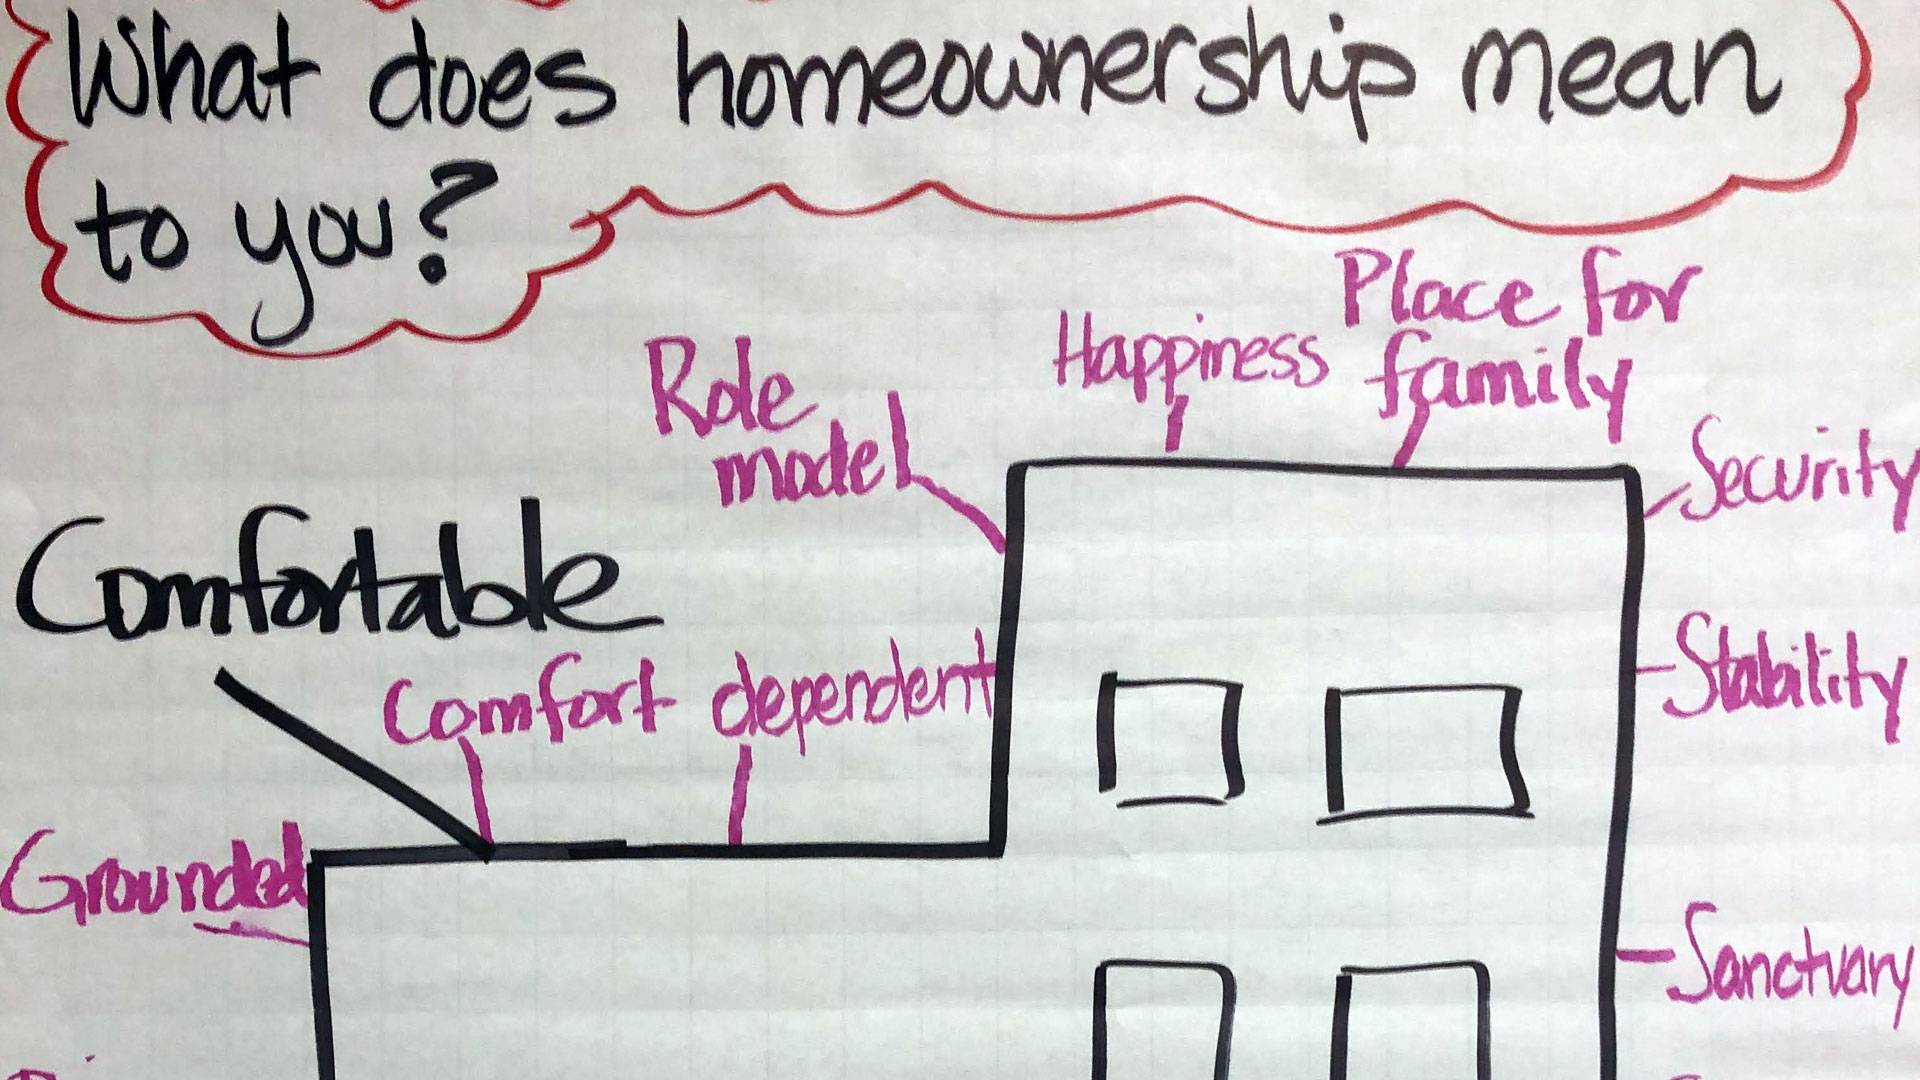 What does homeownership mean
to you?
Place for
family
Happiness
Role
model
Security
Comfortable
Comfort dependent
Stability
Grounded
Sanctuary